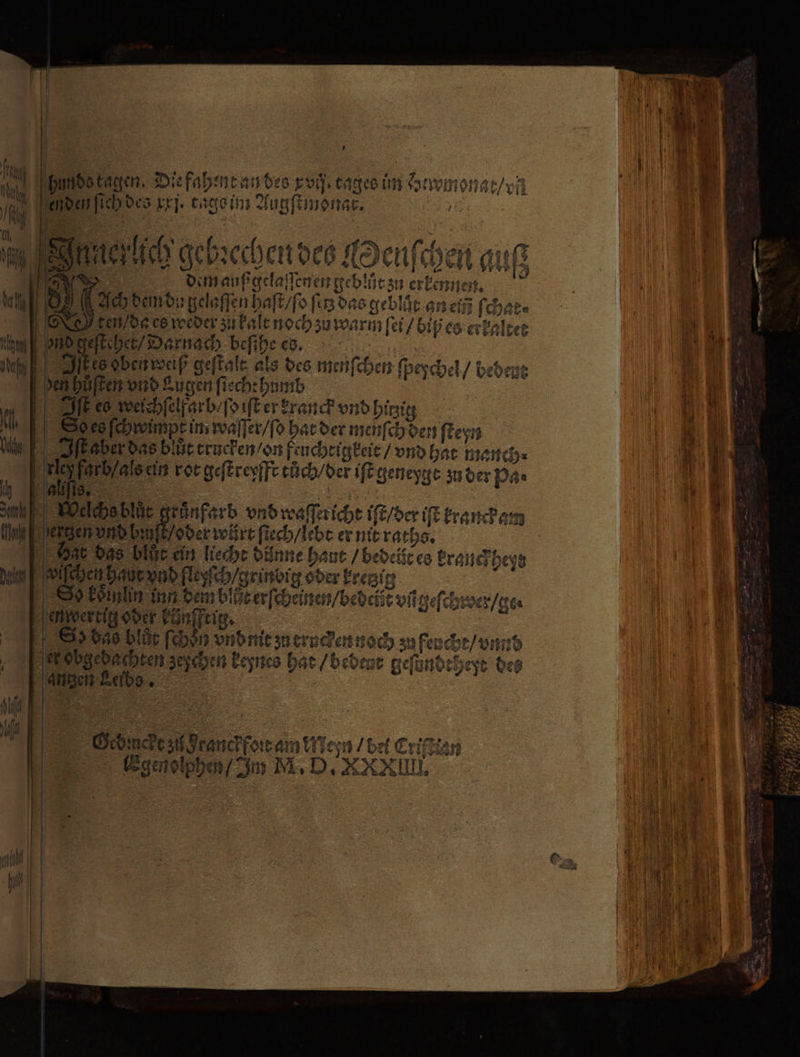 hundstagen. Die fahent an des xvij. tages im Hewmonat/vñ
enden ſich des xxj. tags im Augſtmonat.
Innerlich gebꝛechen des Menſchen auß
dem außgelaſſenen geblůt zu erkennen.
NAch dem du gelaſſen haſt/ſo ſetz das geblůt an eiñ ſchat⸗
ten/da es weder zu kalt noch zu warm ſei/biß es erkaltet
vnd geſtehet/Darnach beſihe es.
Iſt es oben weiß geſtalt als des menſchen ſpeychel/bedeut
den hůſten vnd Lugen ſiechthumb
Iſt es weichſelfarb/ſo iſt er kranck vnd hitzig
So es ſchwimpt im waſſer/ſo hat der menſch den ſteyn
Iſt aber das blůt trucken/on feuchtigkeit/vnd hat manch⸗
rley farb/als ein rot geſtreyfft tůch/der iſt geneygt zu der Pa⸗
raliſis.
Welchs blůt grůnfarb vnd waſſericht iſt/der iſt kranck am
hertzen vnd bꝛuſt/oder würt ſiech/lebt er nit raths.
Hat das blůt ein liecht dünne haut/bedeüt es kranckheyt
zwiſchen haut vnd fleyſch/grindig oder kretzig
So kömlin inn dem blůt erſcheinen/bedeüt vil geſchwer/ge⸗
genwertig oder künfftig.
So das blůt ſchön vnd nit zu trucken noch zu feucht/vnnd
der obgedachten zeychen keynes hat/bedeut geſundtheyt des
gantzen Leibs.
Gedꝛuckt zů Franckfoꝛt am Meyn/bei Criſtian
Egenolphen/Im M. D. XXXIIII.